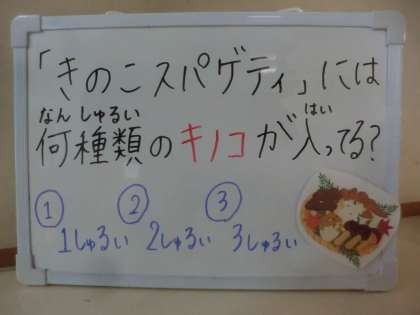 「きのこスパゲティ」には
なんしゅるい はい
何種類のキノコが入ってる?
① ② ③
1しゅるい 2しゅるい 3しゅるい